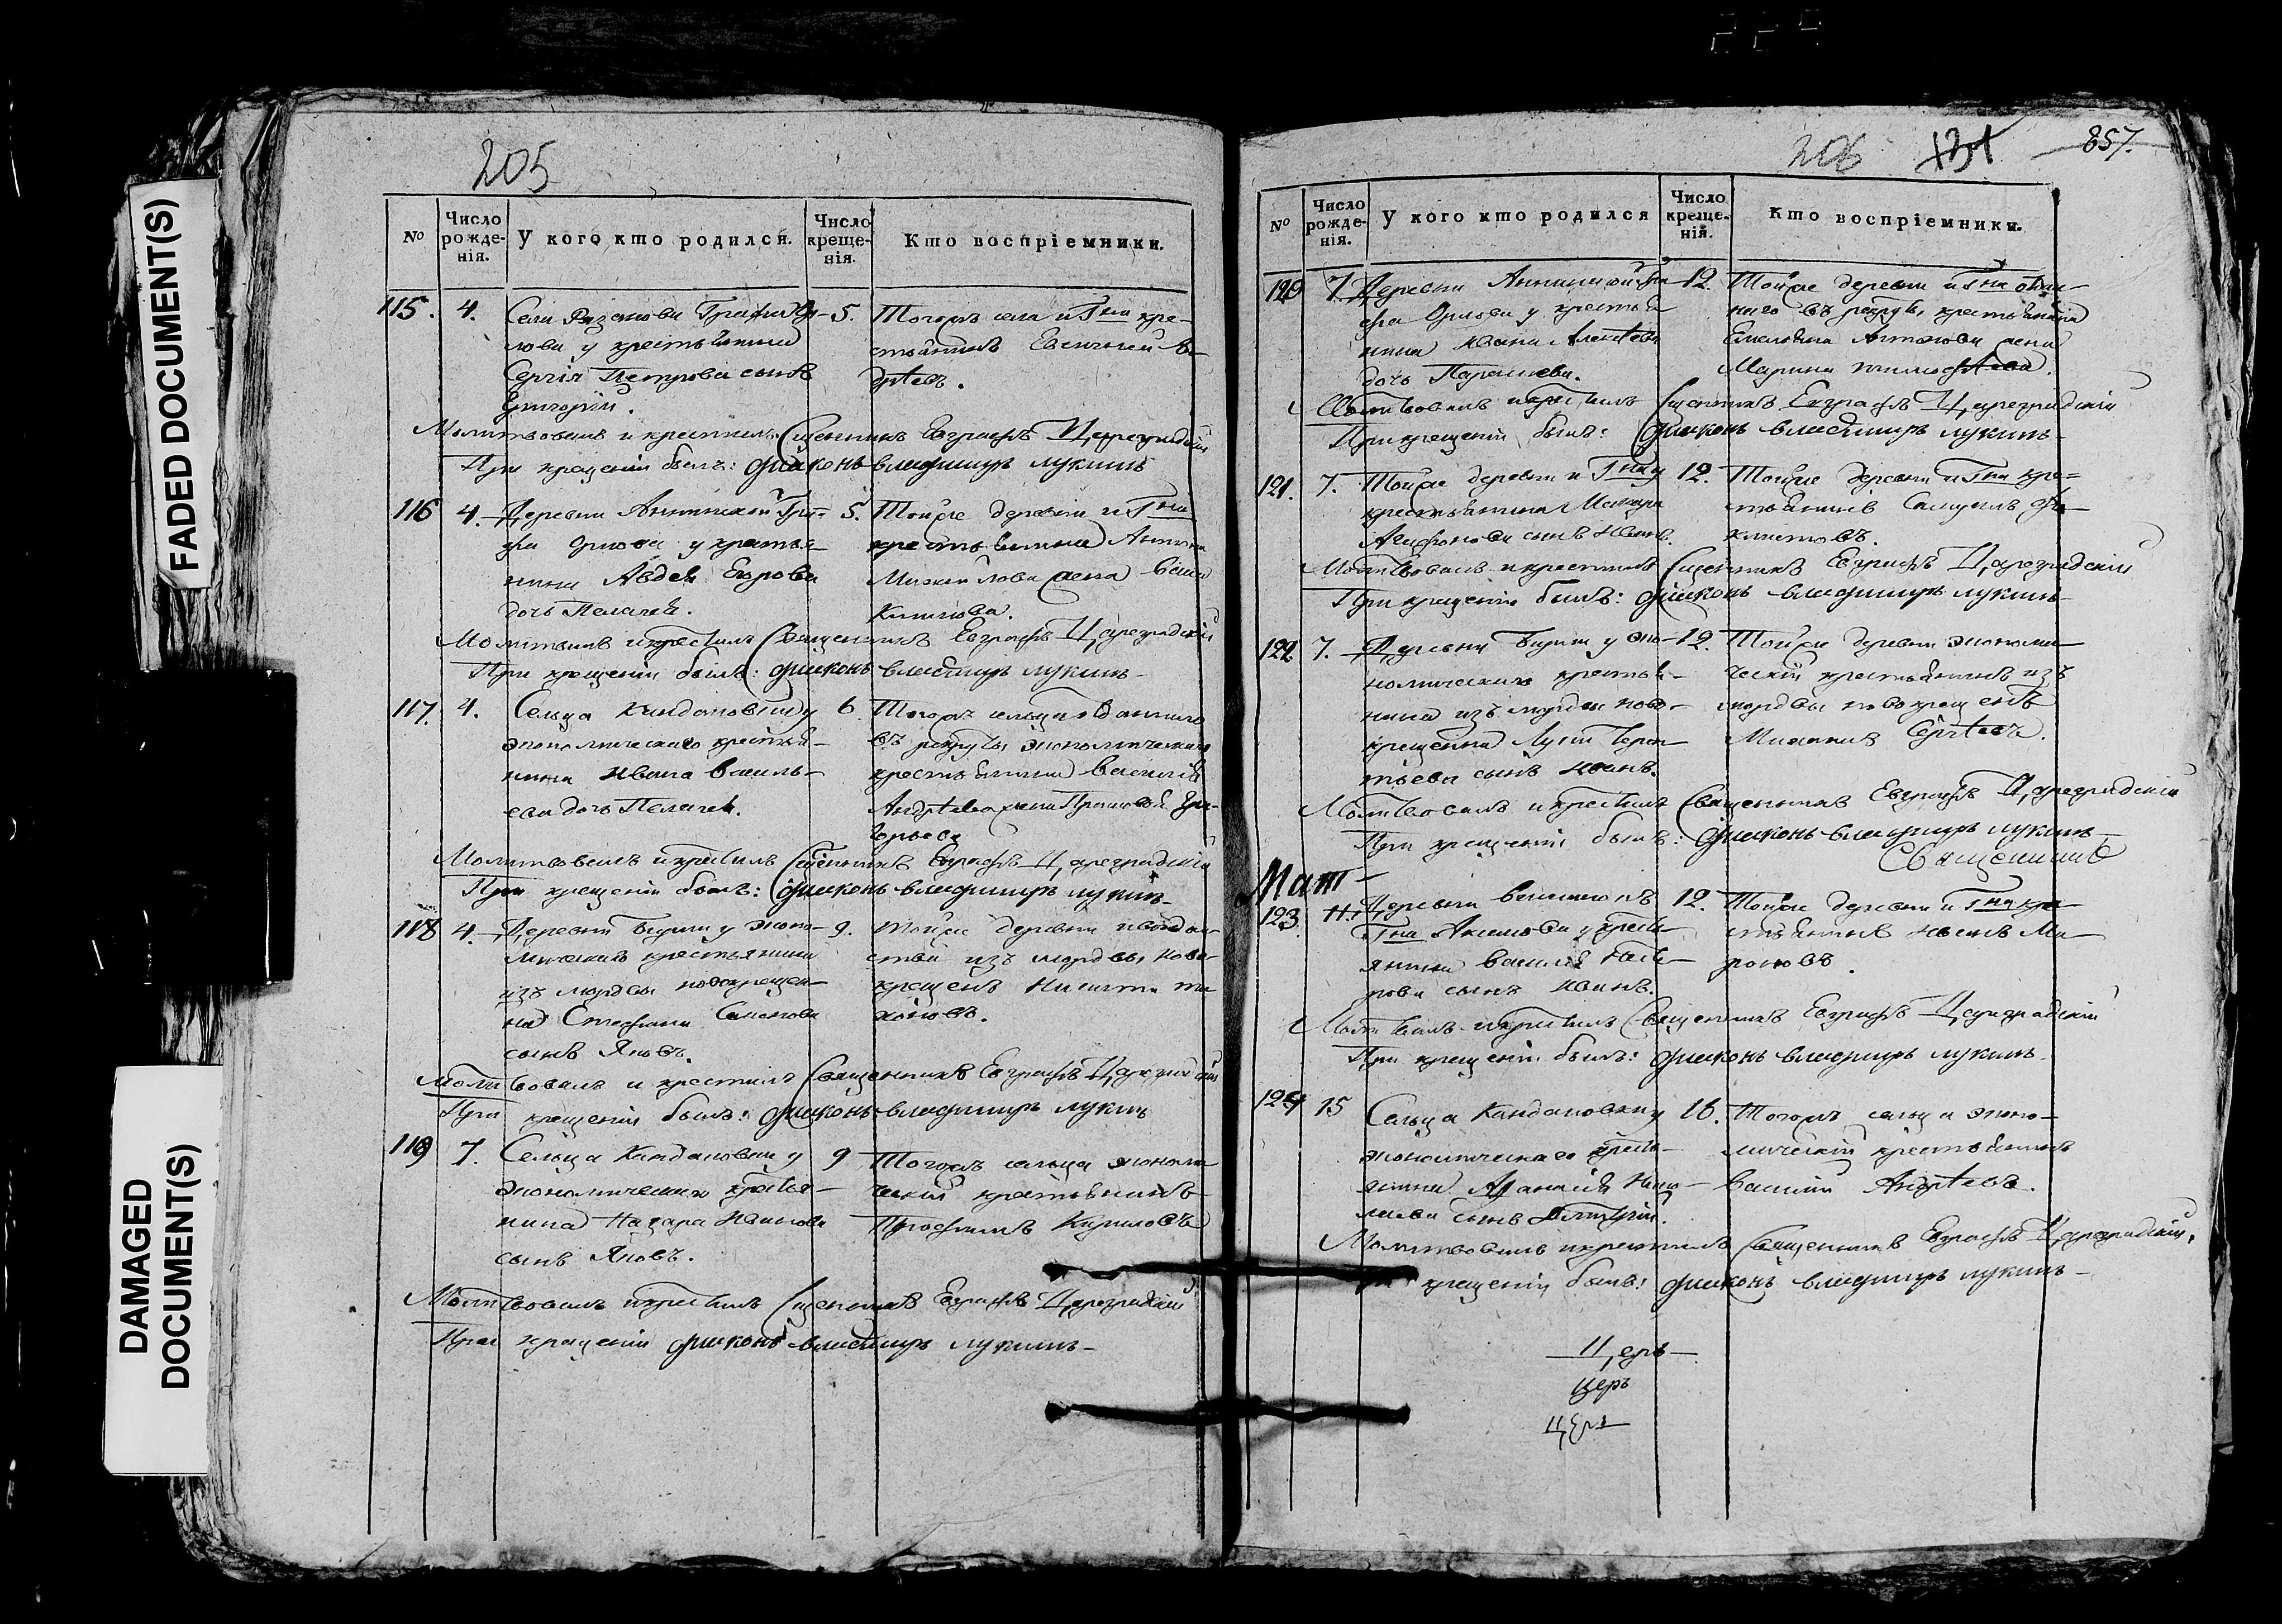 FADED DOCUMENT(S)
DAMAGED
DOCUMENT(S)
205
№
Число рожденія.
У кого кто родился.
Число крещенія.
Кто воспріемники.
115. 4.
Села Рязанова Графа Ор-
лова у крестьянина
Сергія Петрова сынъ
Григорій.
5.
Тогожъ села и Гна кре-
стьянинъ Евгеній
Молитвовалъ и крестилъ Сщенникъ Евграфъ Цареградскій
При крещеніи былъ: діаконъ владимиръ лукинъ
116 4.
Деревни Аннинской Гра-
фа Орлова у крестья-
нина Авдея Егорова
дочь Пелагея.
5.
Тойже деревни и Гна
крестьянина Антона
Михайлова жена
Молитвилъ и крестилъ Священникъ Евграфъ Цареградскій
При крещеніи былъ: діаконъ владимиръ лукинъ
117. 4.
Сельца Кандаковки у
экономическаго крестья-
нина Ивана василь-
ева дочь Пелагея.
6
Тогожъ сельца отданнаго
въ рекруты экономическаго
крестьянина василія
Андрѣева жена Прасковья Гри-
горьева
Молитвовалъ и крестилъ Сщенникъ Евграфъ Цареградскій
При крещеніи былъ: діаконъ владимиръ лукинъ
118 4.
Деревни у эконо-
мическаго крестьянина
изъ мордвы новокрещен-
на Стефана Семенова
сынъ Яковъ.
9.
Тойже деревни
изъ мордвы ново-
крещенъ Никита ти
хоновъ.
Молитвовалъ и крестилъ Священникъ Евграфъ Цареградскій
При крещеніи былъ: діаконъ владимиръ лукинъ
119 7.
Сельца Кандаковки у
экономическаго крестья-
нина Назара Иванова
сынъ Яковъ.
9
Тогожъ сельца экономи
ческій крестьянинъ
Трофимъ Кириловъ
Молитвовалъ и крестилъ Сщенникъ Евграфъ Цареградскій
При крещеніи діаконъ владимиръ лукинъ
206 131 857.
№
Число рожденія.
У кого кто родился
Число крещенія.
Кто воспріемники.
120 7.
Деревни Аннинской Гра
фа Орлова у крестья
нина Ивана Алексѣева
дочь Парасковья.
12.
Тойже деревни и Гна отдан-
наго въ рекруты крестьянина
Емельяна Антонова жена
Марина тимофѣева.
Молитвовалъ и крестилъ Сщенникъ Евграфъ Цареградскій
При крещеніи былъ: діаконъ владимиръ лукинъ
121. 7.
Тойже деревни и Гна у
крестьянина
Агафонова сынъ Иванъ.
12.
Тойже деревни и Гна кре-
стьянинъ Самуилъ
Молитвовалъ и крестилъ Сщенникъ Евграфъ Цареградскій
При крещеніи былъ: діаконъ владимиръ лукинъ
122 7.
Деревни у эко-
номическаго крестья-
нина изъ мордвы ново-
крещенна Луки Терен-
тьева сынъ Иванъ.
12.
Тойже деревни экономи-
ческій крестьянинъ изъ
мордвы новокрещенъ
Сергѣевъ.
Молитвовалъ и крестилъ Священникъ Евграфъ Цареградскій
При крещеніи былъ: діаконъ владимиръ лукинъ
Священникъ
Март
123. 11.
Деревни
Гна Акимова у кресть-
янина василія
сынъ Иванъ.
12.
Тойже деревни и Гна кре-
стьянинъ Иванъ Ми
роновъ.
Молитвилъ и крестилъ Священникъ Евграфъ Цареградскій
При крещеніи былъ: діаконъ владимиръ лукинъ
124 15
Сельца Кандаковки у
экономическаго кресть-
янина Афанасія Нико-
лаева сынъ Дмитрій.
16.
Тогожъ сельца эконо-
мическій крестьянинъ
василій Андрѣевъ.
Молитвовалъ и крестилъ Священникъ Евграфъ Цареградскій,
При крещеніи былъ: діаконъ владимиръ лукинъ
Церъ
церъ